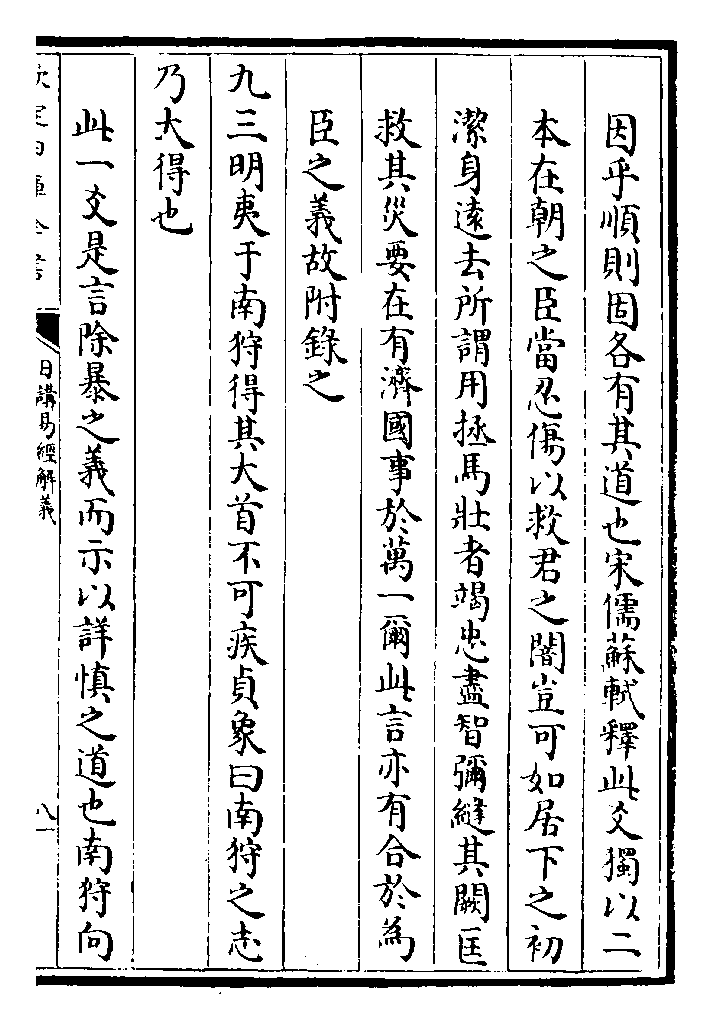 因乎順則固各有其道也宋儒蘇軾釋此爻獨以二
本在朝之臣當忍傷以救君之闇豈可如居下之初
潔身遠去所謂用拯馬壯者竭忠盡智彌縫其闕匡
救其災要在有濟國事於萬一爾此言亦有合於為
臣之義故附錄之
九三明夷于南狩得其大首不可疾貞象曰南狩之志
乃大得也
此一爻是言除暴之義而示以詳慎之道也南狩向
日講易經解義
八